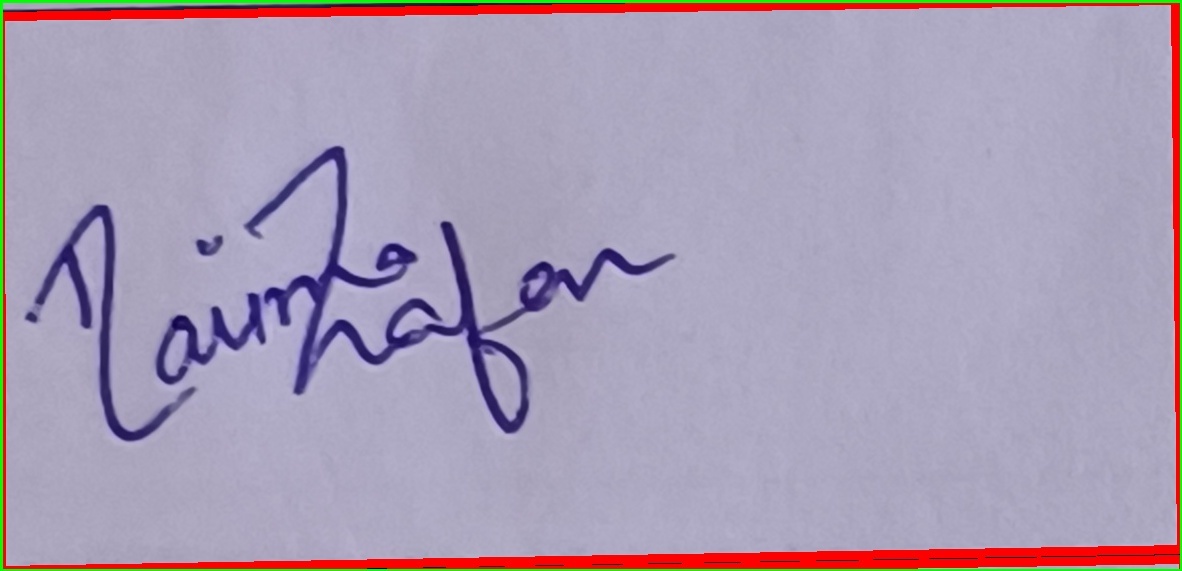 Naima Zafar